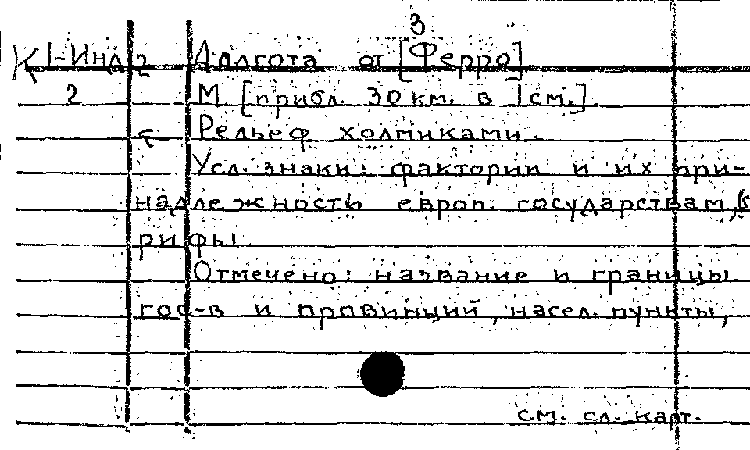 3
К 1-Инд 2 Долгота от [Ферро]
2 М [прибл. 30 км. в 1 см.].
Рельеф холмиками.
Усл. знаки: фактории и их при-
надлежность европ. государствам,
рифы.
Отмечено: название и границы
гос-в и провинций, насел. пункты,
см. сл. карт.